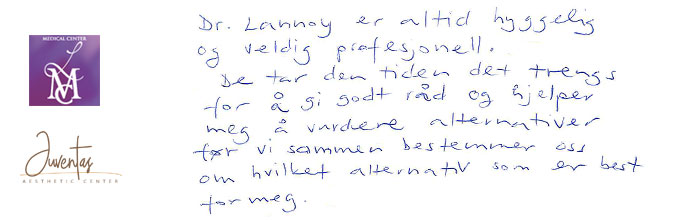 MEDICAL CENTER
LMC
Juventas
AESTHETIC CENTER
Dr. Lannoy er altid hyggelig
og veldig profesjonell.
De tar den tiden det trengs
for å gi godt råd og hjelper
meg å vurdere alternativer
før vi sammen bestemmer oss
om hvilket alternativ som er best
for meg.